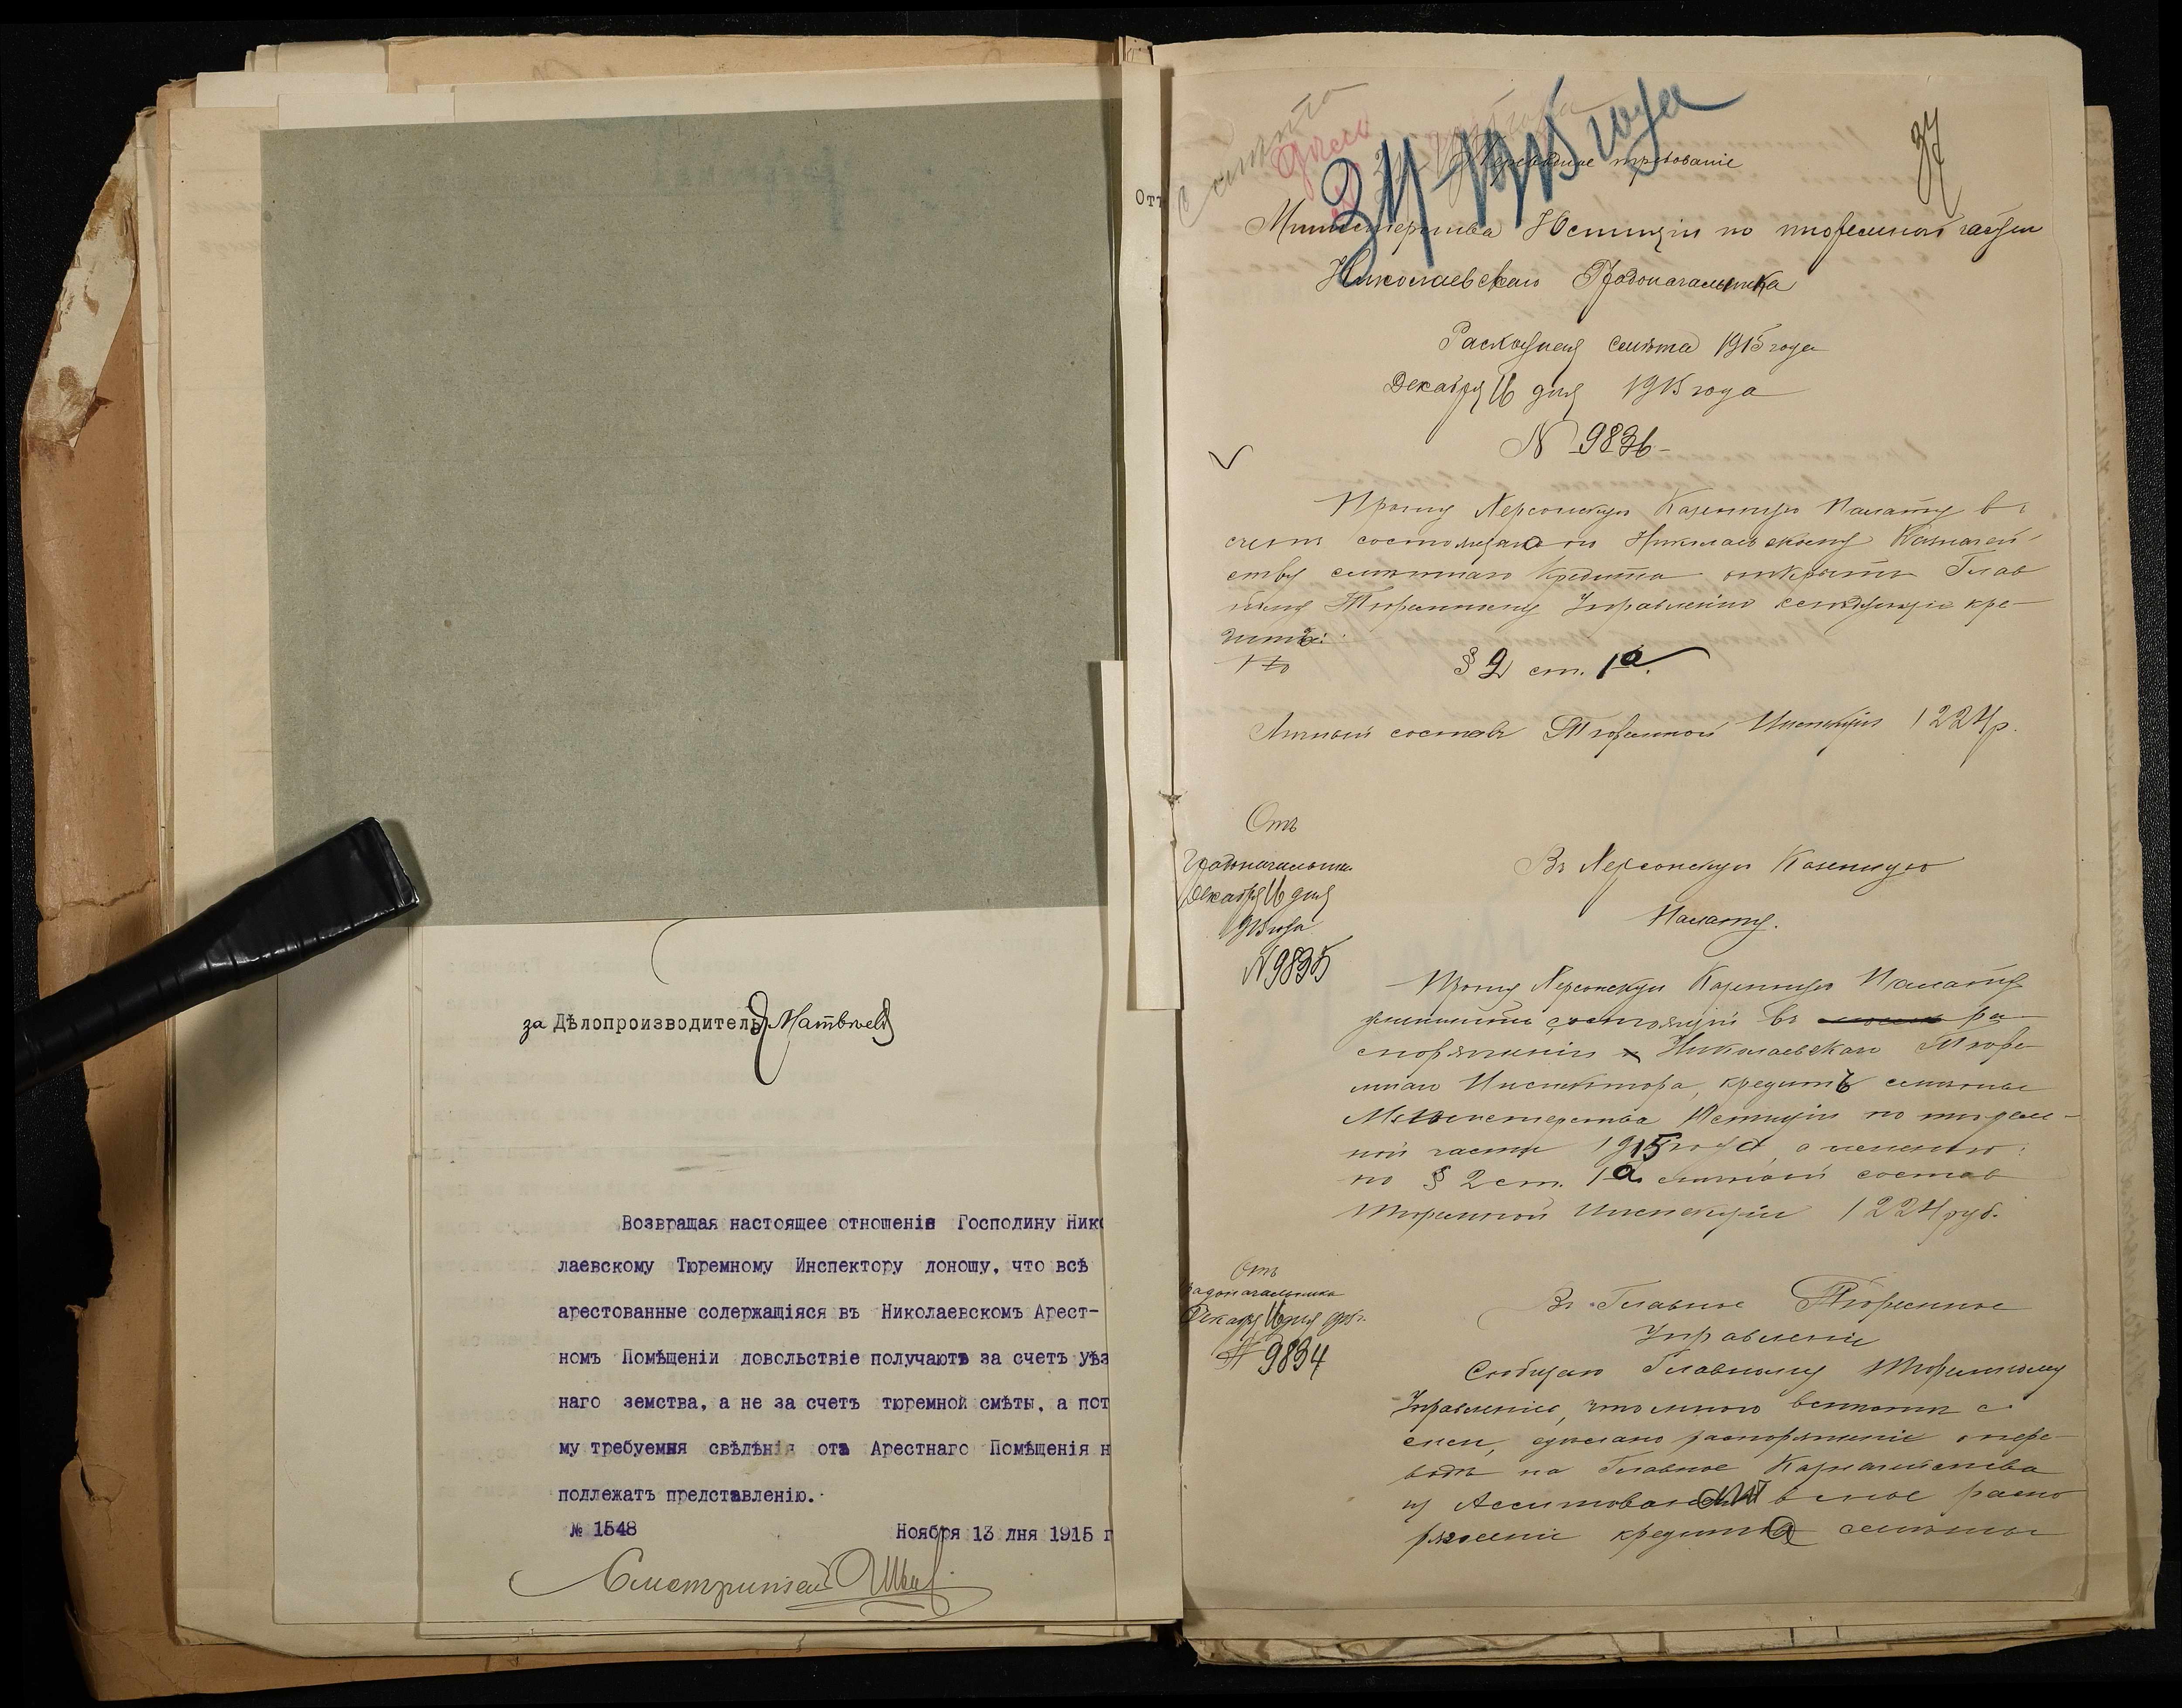 за Дѣлопроизводитель
Возвращая настоящее отношеніе Господину Нико
лаевскому Тюремному Инспектору доношу, что всѣ
арестованные содержащіяся въ Николаевскомъ Арест-
номъ Помѣщеніи довольствіе получаютъ за счетъ уѣз
наго земства, а не за счетъ тюремной смѣты, а пот
му требуемыя свѣдѣнія отъ Арестнаго Помѣщенія н
подлежатъ представленію.
№ 1548 Ноября 13 дня 1915 г
Смотритель
От
37
34 1915 года
Переводное требованіе
Министерства Юстиціи по тюремной части
Николаевскаго Градоначальника
Расходная смѣта 1915 года
Декабря 16 дня 1915 года
N 9836
Прошу Херсонскую Казенную Палату въ
счетъ состоящаго по Николаевскому Казначей-
ству смѣтнаго кредита открыть Глав
ному Тюремному Управленію слѣдующіе кре-
диты:
По § 2 ст. 1а.
Личный составъ Тюремной Инспекціи 1224 р.
Отъ
Градоначальника
Декабря 16 дня
1915 года
N 9835
Въ Херсонскую Казенную
Палату.
Прошу Херсонскую Казенную Палату
состоящій въ ра
споряженіи Николаевскаго Тюре
мнаго Инспектора, кредитъ смѣты
Министерства Юстиціи по тюрем-
ной части 1915 года, а именно:
по § 2 ст. 1а личный составъ
Тюремной Инспекціи 1224 руб.
Отъ
Градоначальника
Декабря 16 дня 1915 г.
N 9834
Въ Главное Тюремное
Управленіе
Сообщаю Главному Тюремному
Управленію, что мною вмѣстѣ с
симъ, сдѣлано распоряженіе о пере-
водѣ на Главное Казначейство
из Ассигнован въ мое распо
ряженіе кредита смѣты